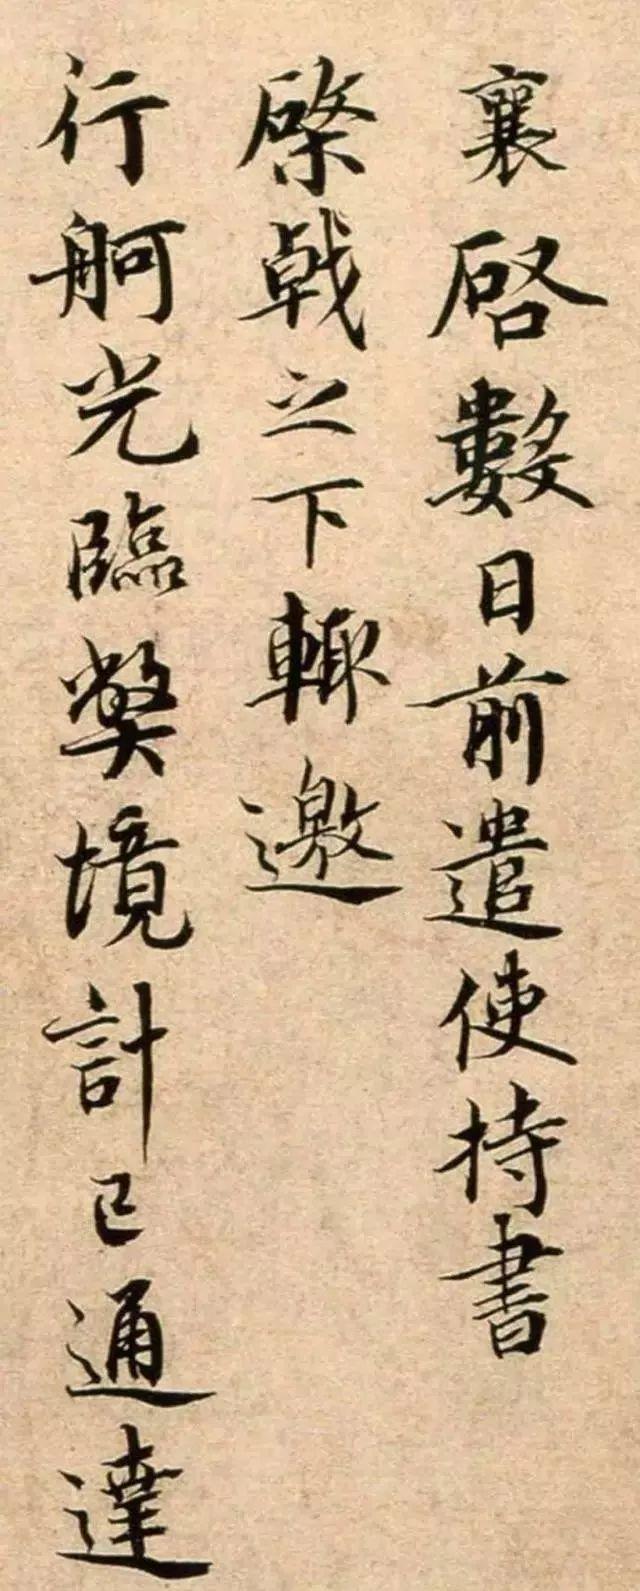 襄啓數日前遣使持書
棨戟之下輙邀
行舸光臨弊境計已通達